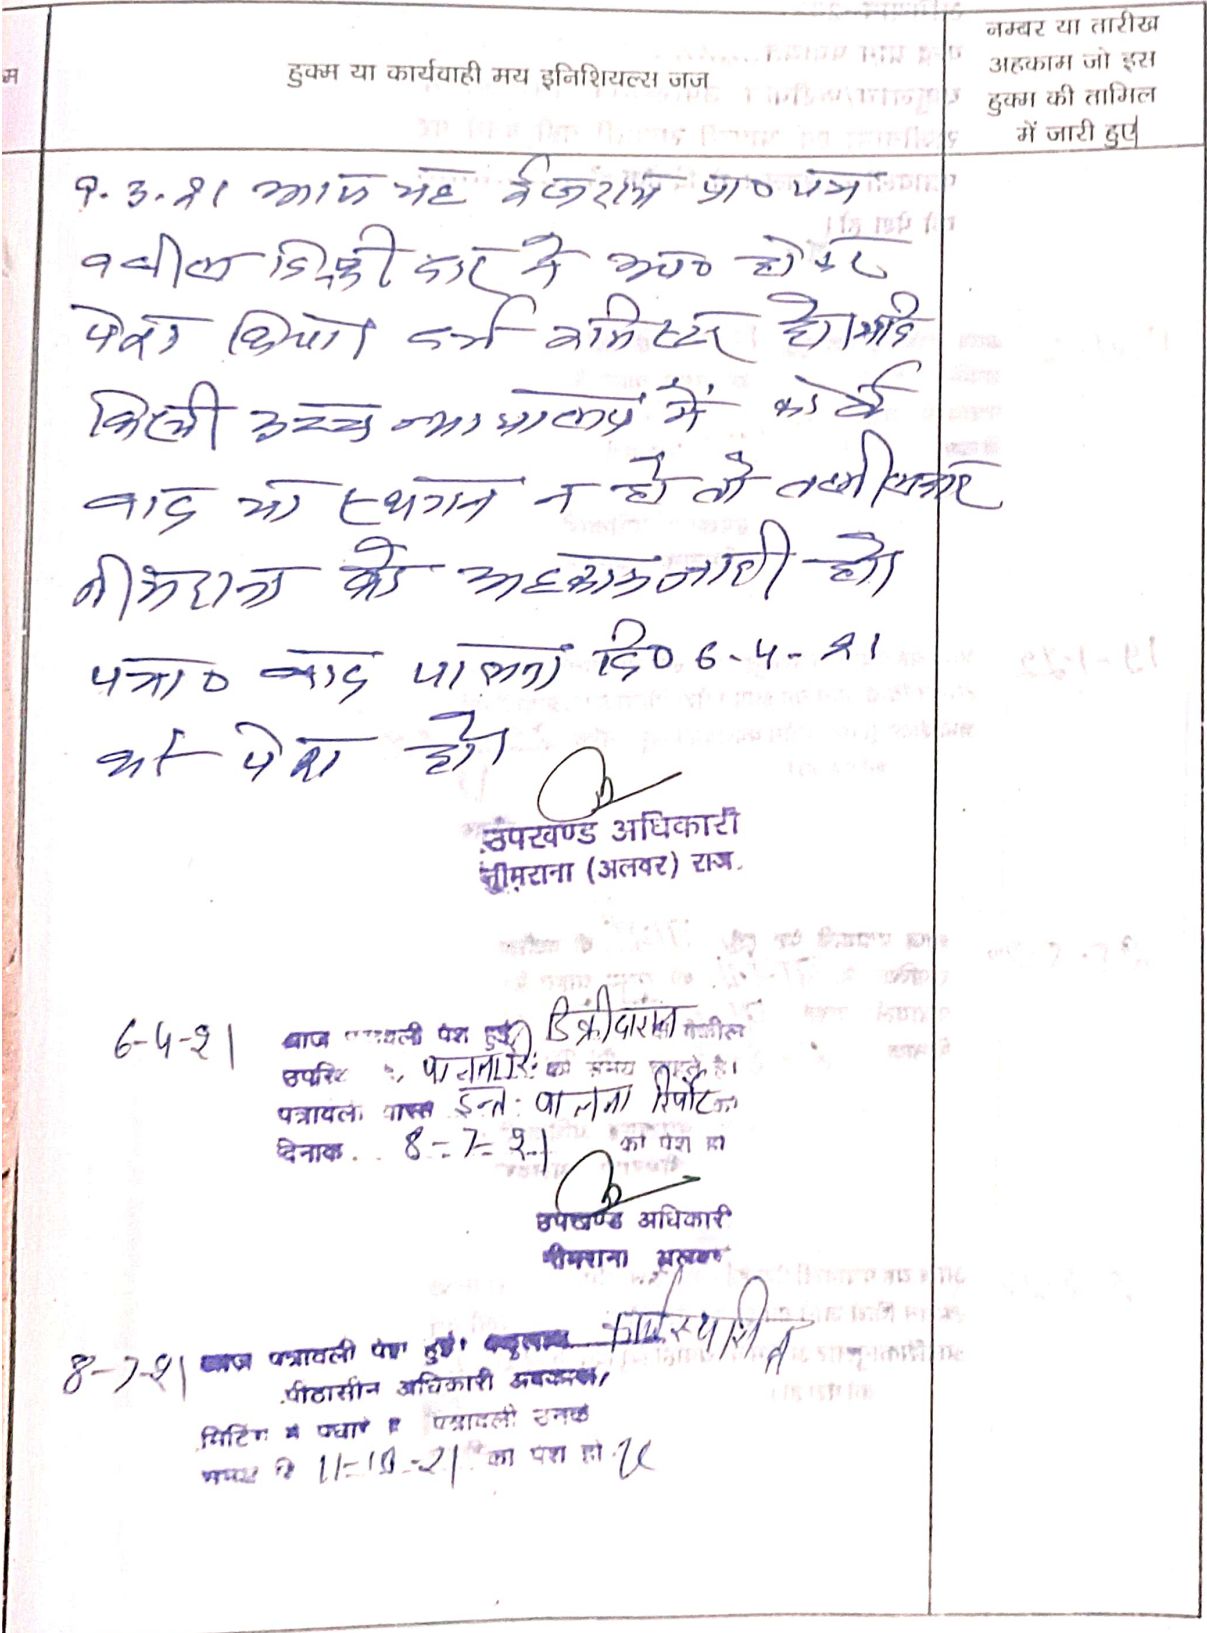 म
हुक्म या कार्यवाही मय इनिशियल्स जज
नम्बर या तारीख
अहकाम जो इस
हुक्म की तामिल
में जारी हुए
9.3.21 आज यह ईजराय प्रा० पत्र
वकील डिक्री दार ने उप० होकर
पेश किया। दर्ज रजिस्टर हो। यदि
किसी उच्च न्यायालय में कोई
वाद या स्थगन न हो तो तहसीलदार
नीमराना को अहकाम जारी हो।
पत्रा० बाद पालना दि० 6-4-21
को पेश हो।
उपखण्ड अधिकारी
नीमराना (अलवर) राज.
6-4-21 आज पत्रावली पेश हुई। डिक्रीदारान वकील
उपस्थि पालनार्थ को समय चाहते है।
पत्रावली वास्ते इन्त. पालना रिर्पोट
दिनाक 8-7-21 को पेश हो
उपखण्ड अधिकारी
नीमराना अलवर
8-7-21 आज पत्रावली पेश हुई। कार्यस्थगित
पीठासीन अधिकारी अवकाश/
मिटिंग में पधारे है पत्रावली उनके
समक्ष दि 11-10-21 को पेश हो